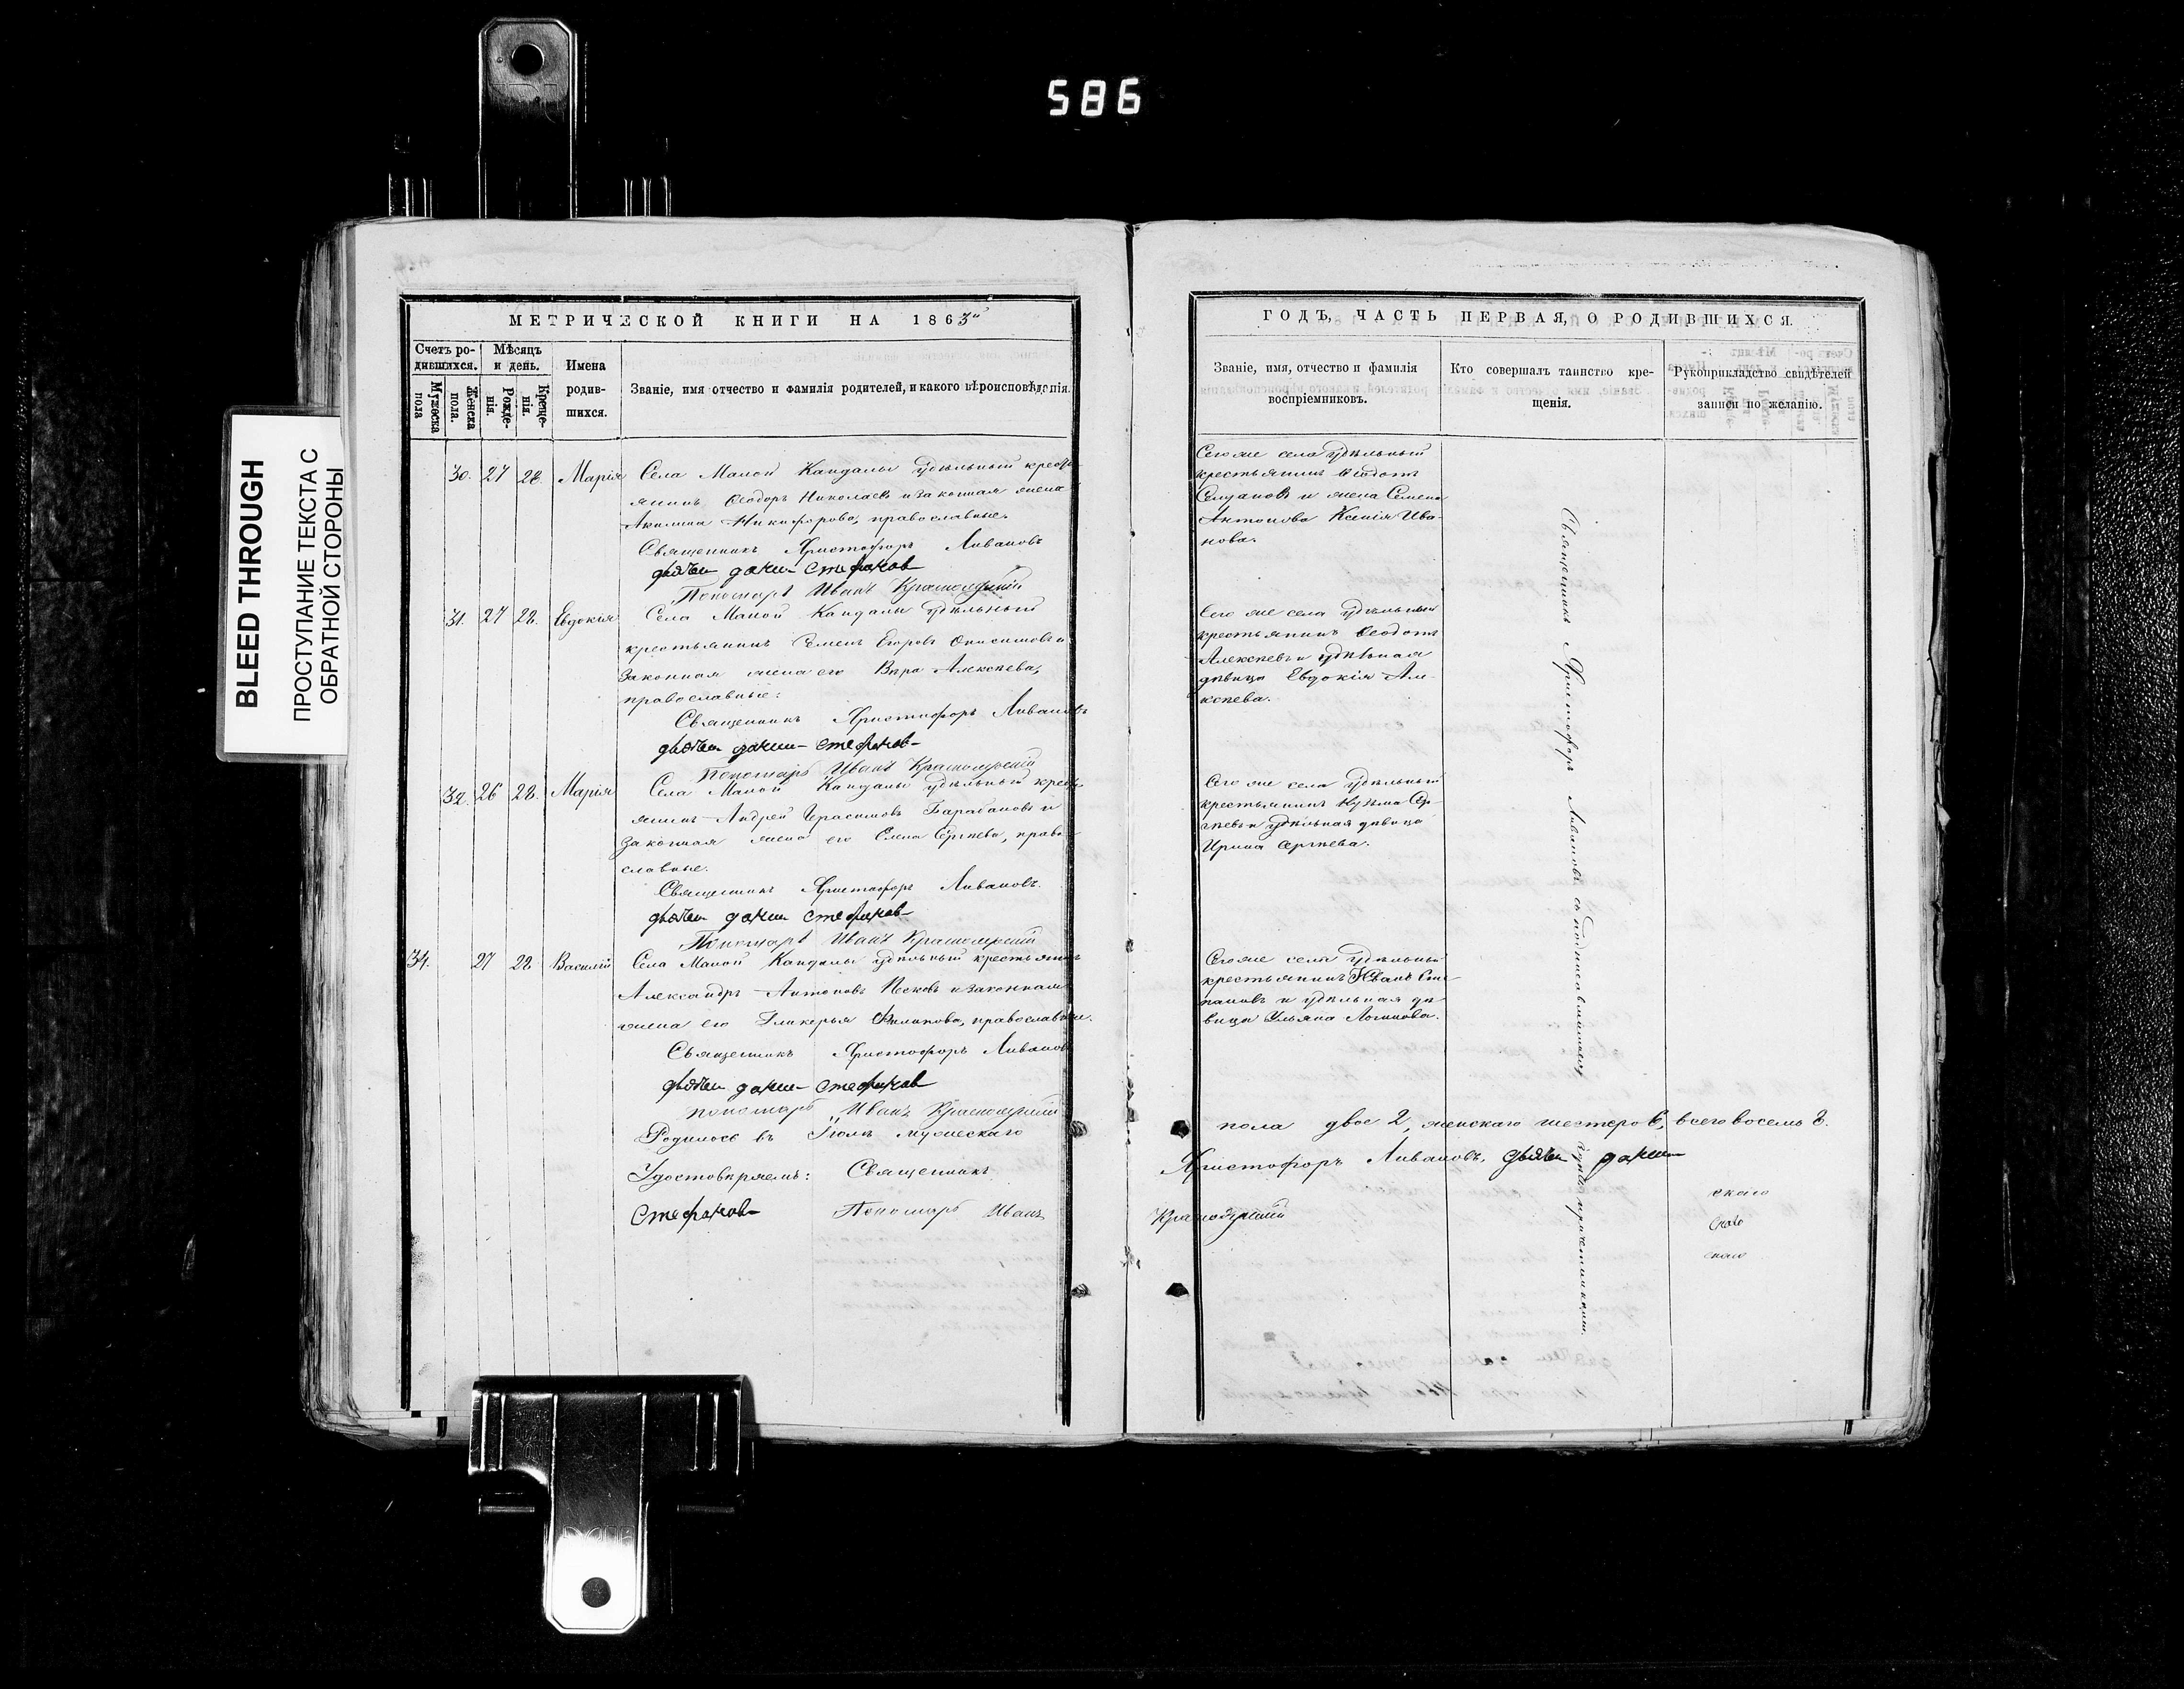 586
BLEED THROUGH
ПРОСТУПАНИЕ ТЕКСТА С
ОБРАТНОЙ СТОРОНЫ
МЕТРИЧЕСКОЙ КНИГИ НА 1863й
Счетъ ро-
дившихся.
Мѣсяцъ
и день.
Мужеска
пола
Женска
пола.
Рожде-
нія.
Креще-
нія.
Имена
родив-
шихся.
Званіе, имя отчество и фамилія родителей, и какого вѣроисповѣданія.
30. 27 28. Марія Села Малой Кандалы удѣльный кресть-
янинъ Ѳеодоръ Николаевъ и законная жена
Акилина Никифорова, православные.
Священникъ Христофоръ Ливановъ
дьячек Стефанов
Пономарь Иванъ
31. 27 28. Евдокія Села Малой Кандалы удѣльный
крестьянинъ Семенъ Егоровъ Онисимовъ и
законная жена его Вѣра Алексѣева,
православные:
Священникъ Христофоръ Ливановъ
дьячек Стефанов
Пономарь Иванъ
32. 26 28. Марія Села Малой Кандалы удѣльный кресть-
янинъ Андрей Герасимовъ Барабановъ и
законная жена его Елена Сергѣева, право-
славные.
Священникъ Христофоръ Ливановъ.
дьячек Стефанов
Пономарь Иванъ
34. 27 28 Василій Села Малой Кандалы удѣльный крестьянинъ
Александръ Антоновъ Песковъ и законная
жена его Гликерья Филипова, православные.
Священникъ Христофоръ Ливановъ
дьячек Стефанов
Пономарь Иванъ
Родилось въ Іюлѣ мужескаго
Удостовѣряемъ: Священникъ
Стефанов Пономарь Иванъ
ГОДЪ, ЧАСТЬ ПЕРВАЯ, О РОДИВШИХСЯ.
Званіе, имя, отчество и фамилія
воспріемниковъ.
Кто совершалъ таинство кре-
щенія.
Рукоприкладство свидѣтелей
записи по желанію.
Сего же села удѣльный
крестьянинъ Ѳеодотъ
и жена Семена
Антонова Ксенія Ива-
нова.
Сего же села удѣльный
крестьянинъ Ѳеодотъ
Алексѣевъ и удѣльная
дѣвица Евдокія Але-
ксѣева.
Сего же села удѣльный
крестьянинъ Кузьма Сер-
гѣевъ и удѣльная дѣвица
Ирина Сергѣева.
Сего же села удѣльный
крестьянинъ Иванъ Сте-
пановъ и удѣльная дѣ-
вица Ульяна Логинова.
Священникъ Христофоръ Ливановъ съ нижеподписавшимися причетниками.
пола двое 2, женскаго шестеро 6, всего восемь 8.
Христофоръ Ливановъ, дьячек